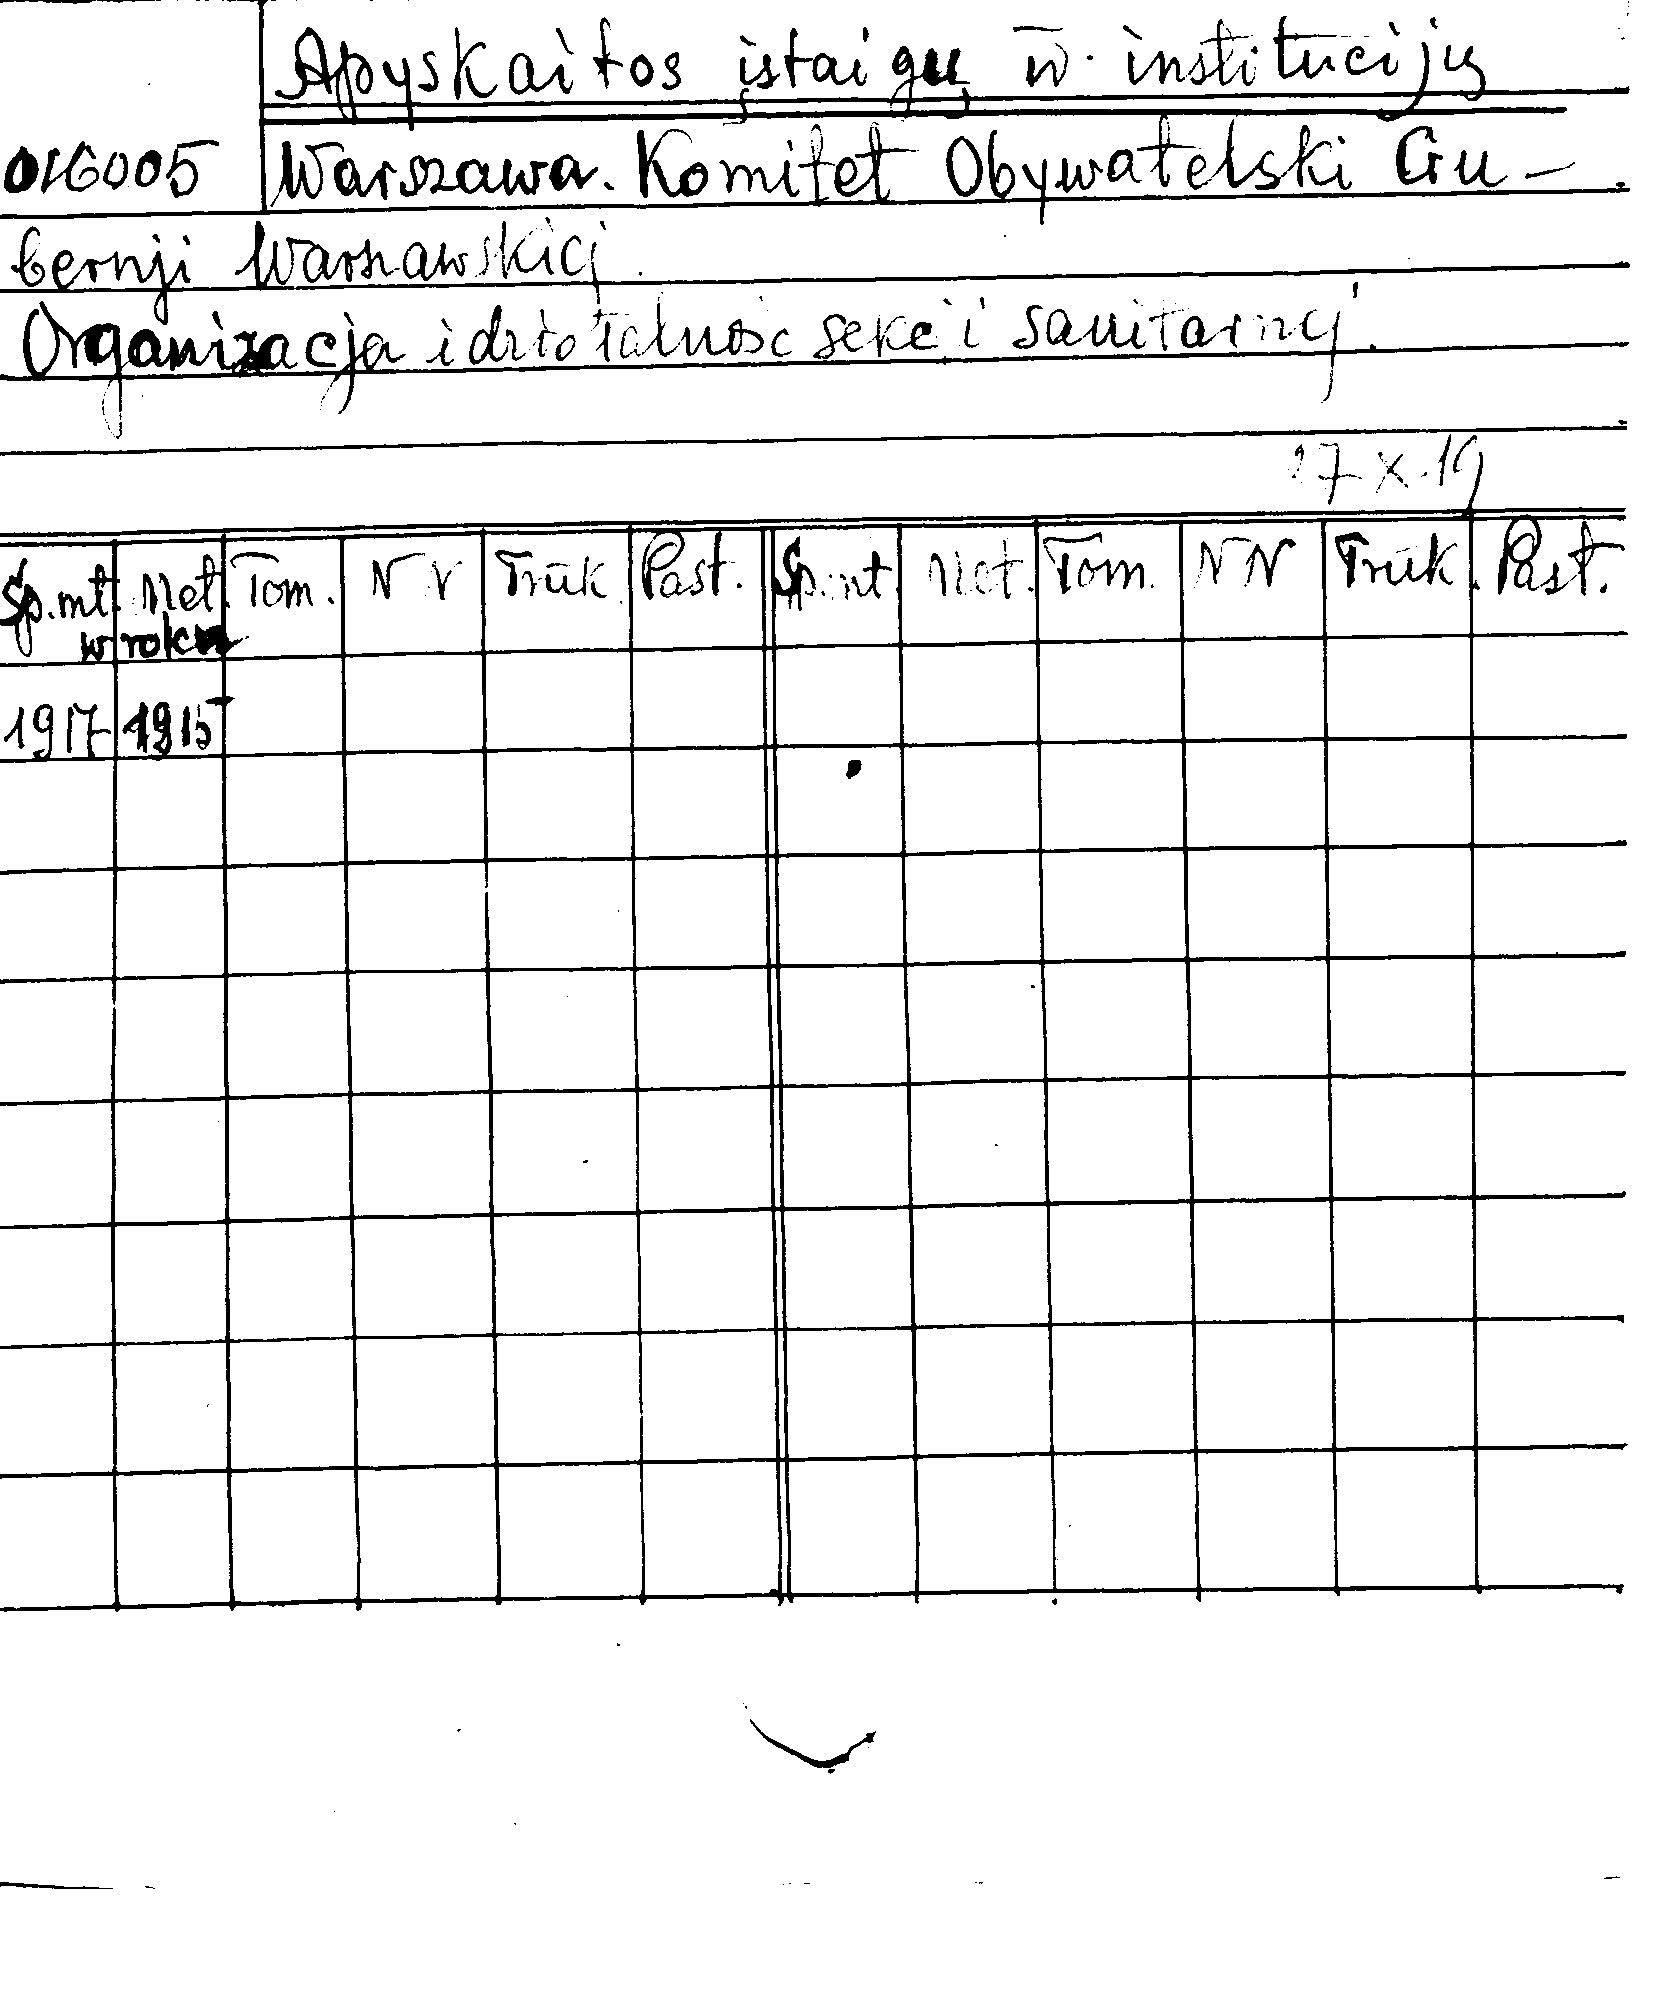 Apyskaitos įstaigų ir institucijų
016005 Warszawa. Komitet Obywatelski Gu-
bernji Warszawskiej
Organizacja i działalność sekcji sanitarnej.
27 X.19
Sp.mt. Met. Tom. N N Trūk. Past. Sp.mt. Met. Tom. N N Trūk. Past.
w roku
1917 1915